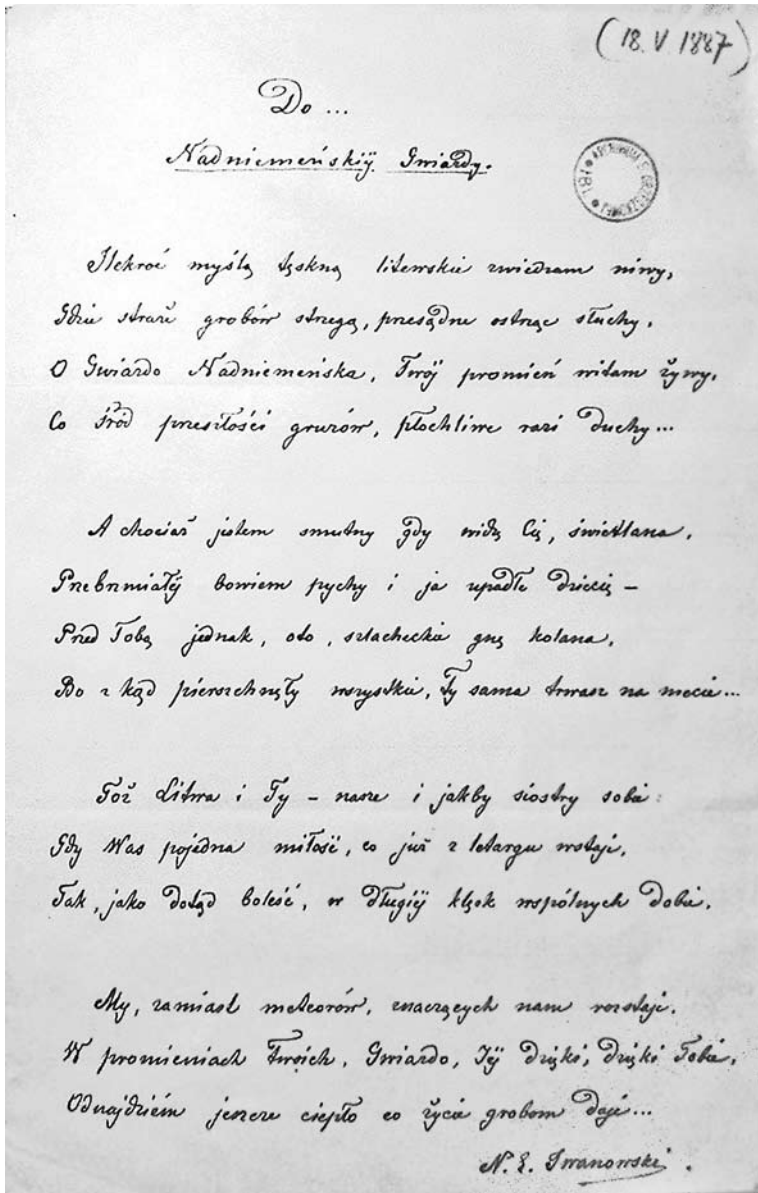 (18. V 1887)
Do ...
Nadniemeńskiéj Gwiazdy.
ARCHIWUM E. ORZESZKOWEJ
Ilekroć myślą tęskną litewskie zwiedzam niwy,
Gdzie straże grobów strzegą, przesądne ostrząc słuchy,
O Gwiazdo Nadniemeńska, Twój promień witam żywy,
Co śród przeszłości gruzów, płochliwe razi duchy...
A chociaż jestem smutny gdy widzę Cię, świetlana,
Przebrzmiałéj bowiem pychy i ja upadłe dziecię –
Przed Tobą jednak, oto, szlacheckie gnę kolana,
Bo z kąd pierszchnęły wszystkie, Ty sama trwasz na mecie...
Toż Litwa i Ty – nasze i jakby siostry sobie:
Gdy Was pojedna miłość, co już z letargu wstaje,
Tak, jako dotąd boleść, w długiéj klęsk wspólnych dobie,
My, zamiast meteorów, znaczących nam rozstaje,
W promieniach Twoich, Gwiazdo, Jéj dzięki, dzięki Tobie,
Odnajdziem jeszcze ciepło co życie grobom daje...
N. E. Iwanowski.